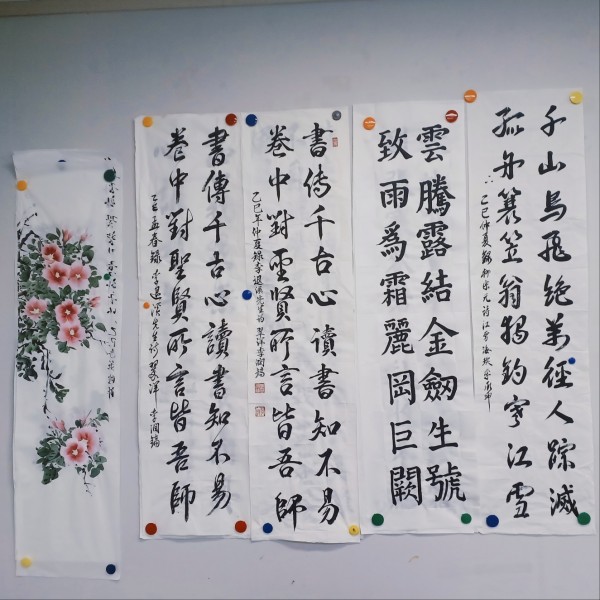 千山鳥飛绝萬徑人踪滅
孤舟蓑笠翁独钓寒江雪
乙巳仲夏錄柳宗元詩江雪
雲騰露結金劒生號
致雨爲霜麗岡巨闕
書传千古心读書知不易
卷中對聖賢所言皆吾師
乙巳年仲夏錄李退溪先生詩 翠洋李潤鎬
書傳千古心讀書知不易
卷中對聖賢所言皆吾師
乙巳孟春錄李退溪先生詩 翠洋 李潤鎬